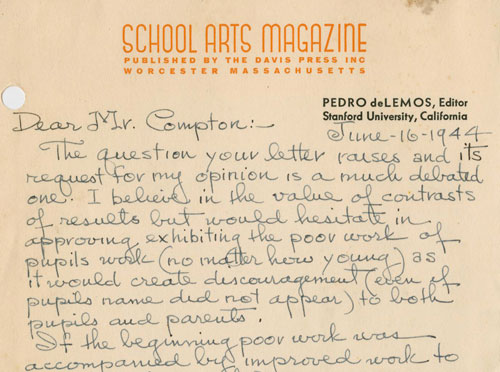 SCHOOL ARTS MAGAZINE
PUBLISHED BY THE DAVIS PRESS INC
WORCESTER MASSACHUSETTS
PEDRO deLEMOS, Editor
Stanford University, California
Dear Mr. Compton:-
June-16-1944
The question your letter raises and its
request for my opinion is a much debated
one. I believe in the value of contrasts
of results but would hesitate in
approving exhibiting the poor work of
pupils work (no matter how young) as
it would create discouragement (even if
pupils name did not appear) to both
pupils and parents.
If the beginning poor work was
accompanied by improved work to